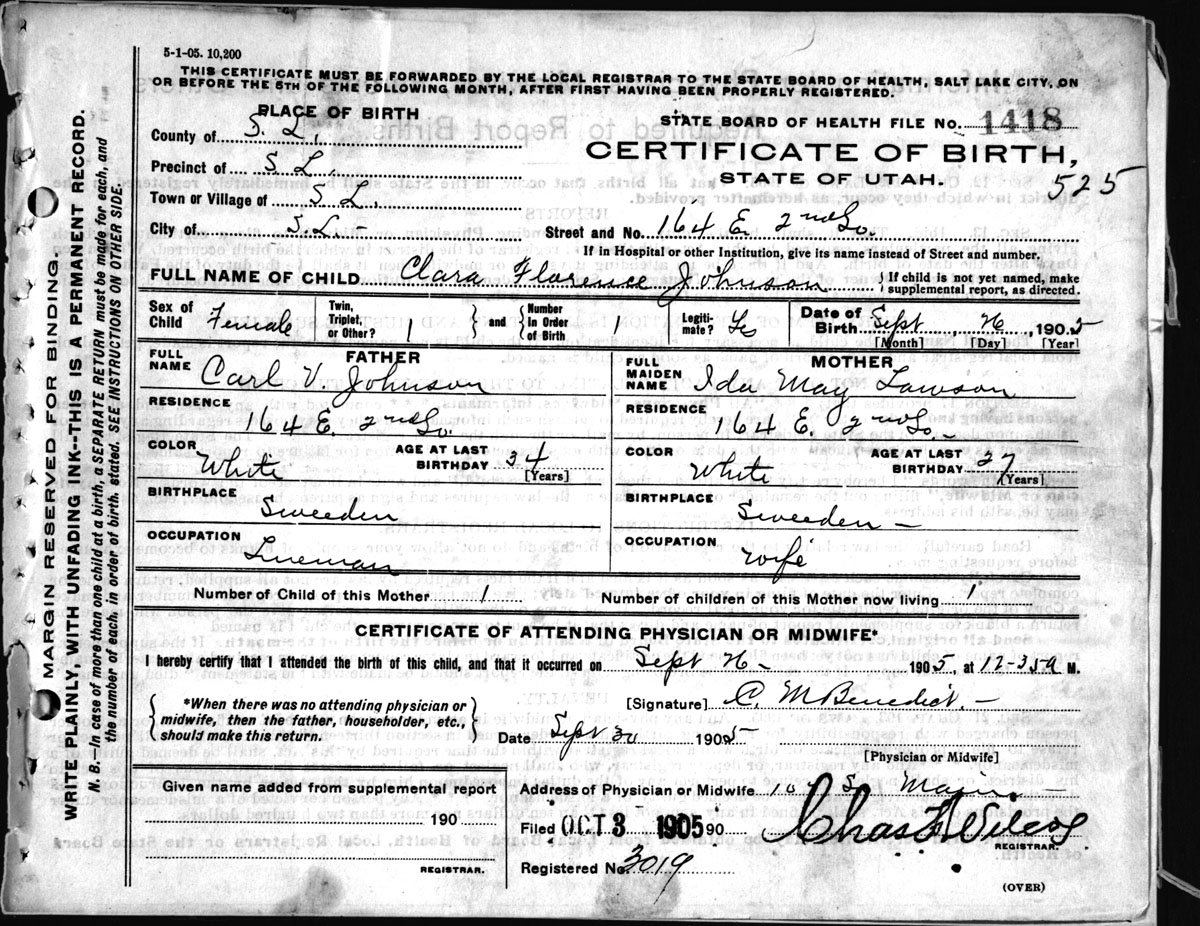 5-1-05. 10,200
THIS CERTIFICATE MUST BE FORWARDED BY THE LOCAL REGISTRAR TO THE STATE BOARD OF HEALTH, SALT LAKE CITY, ON
OR BEFORE THE 5TH OF THE FOLLOWING MONTH, AFTER FIRST HAVING BEEN PROPERLY REGISTERED.
PLACE OF BIRTH
County of S. L.
Precinct of S L.
Town or Village of S L.
City of S. L.
STATE BOARD OF HEALTH FILE No. 1418
CERTIFICATE OF BIRTH,
STATE OF UTAH. 525
Street and No. 164 E. 2nd So.
If in Hospital or other Institution, give its name instead of Street and number.
FULL NAME OF CHILD Clara Florence Johnson { If child is not yet named, make
supplemental report, as directed.
Sex of Child Female Twin, Triplet, or Other? 1 } and { Number in Order of Birth 1 Legiti- mate? Yes Date of Birth Sept, 26, 1905
[Month] [Day] [Year]
FATHER
FULL NAME Carl V. Johnson
RESIDENCE
164 E. 2nd So.
COLOR White AGE AT LAST BIRTHDAY 34 [Years]
BIRTHPLACE
Sweeden
OCCUPATION
Lineman
MOTHER
FULL MAIDEN NAME Ida May Lawson
RESIDENCE
164 E. 2nd So.
COLOR White AGE AT LAST BIRTHDAY 27 [Years]
BIRTHPLACE
Sweeden
OCCUPATION
Wife
Number of Child of this Mother 1 Number of children of this Mother now living 1
CERTIFICATE OF ATTENDING PHYSICIAN OR MIDWIFE*
I hereby certify that I attended the birth of this child, and that it occurred on Sept 26 - 1905, at 12-35 a M.
{ *When there was no attending physician or
midwife, then the father, householder, etc.,
should make this return. }
[Signature] C. M Benedict.
Date Sept 30 1905
[Physician or Midwife]
Given name added from supplemental report
190
REGISTRAR.
Address of Physician or Midwife So Main
Filed OCT 3 1905 90 Chas F. Wilcox
REGISTRAR.
Registered No. 3019
(OVER)
MARGIN RESERVED FOR BINDING.
WRITE PLAINLY, WITH UNFADING INK--THIS IS A PERMANENT RECORD.
N. B.--In case of more than one child at a birth, a SEPARATE RETURN must be made for each, and
the number of each, in order of birth, stated. SEE INSTRUCTIONS ON OTHER SIDE.